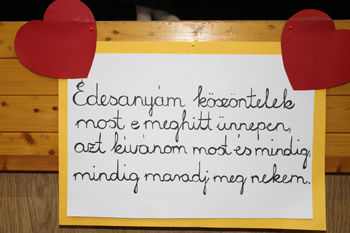 Édesanyám köszöntelek
most e meghitt ünnepen,
azt kívánom most és mindig,
mindig maradj meg nekem.